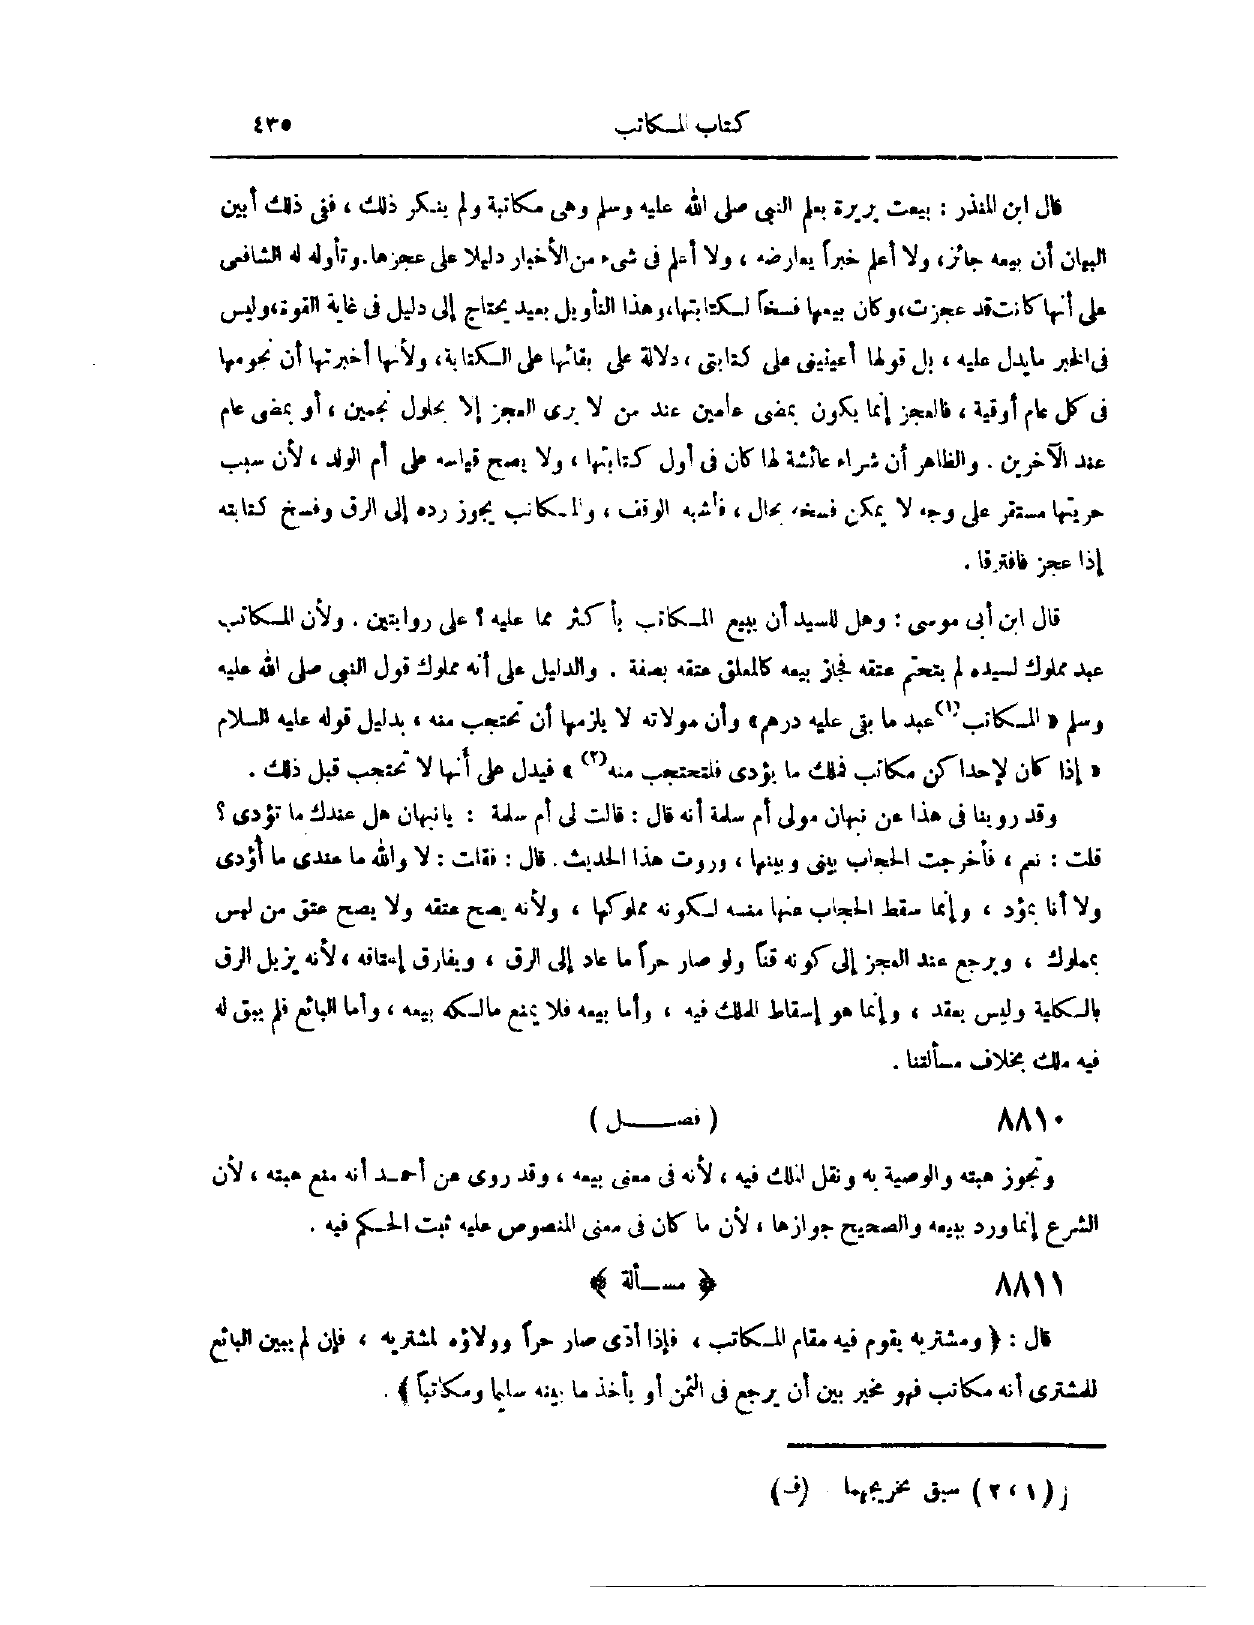 كتاب المكاتب ٤٣٥
قال ابن المنذر : بيعت بريرة بعلم النبى صلى الله عليه وسلم وهى مكاتبة ولم ينكر ذلك ، ففى ذلك أبين
البيان أن بيعه جائز، ولا أعلم خبراً يعارضه ، ولا أعلم فى شىء من الأخبار دليلا على عجزها. وتأوله له الشافعى
على أنها كانت قد عجزت، وكان بيعها فسخاً لكتابتها، وهذا التأويل بعيد يحتاج إلى دليل فى غاية القوة، وليس
فى الخبر مايدل عليه ، بل قولها أعينينى على كتابتى ، دلالة على بقائها على الكتابة، ولأنها أخبرتها أن نجومها
فى كل عام أوقية ، فالعجز إنما يكون بمضى عامين عند من لا يرى العجز إلا بحلول نجمين ، أو بمضى عام
عند الآخرين . والظاهر أن شراء عائشة لها كان فى أول كتابتها ، ولا يصح قياسه على أم الولد ، لأن سبب
حريتها مستقر على وجه لا يمكن فسخه بحال ، فأشبه الوقف ، والمكاتب يجوز رده إلى الرق وفسخ كتابته
إذا عجز فافترقا .
قال ابن أبى موسى : وهل للسيد أن يبيع المكاتب بأكثر مما عليه ؟ على روايتين . ولأن المكاتب
عبد مملوك لسيده لم يتحتم عتقه فجاز بيعه كالمعلق عتقه بصفة . والدليل على أنه مملوك قول النبى صلى الله عليه
وسلم « المكاتب(١) عبد ما بقى عليه درهم» وأن مولاته لا يلزمها أن تحتجب منه ، بدليل قوله عليه السلام
« إذا كان لإحداكن مكاتب فملك ما يؤدى فلتحتجب منه(٢) » فيدل على أنها لا تحتجب قبل ذلك .
وقد روينا فى هذا عن نبهان مولى أم سلمة أنه قال : قالت لى أم سلمة : يانبهان هل عندك ما تؤدى ؟
قلت : نعم ، فأخرجت الحجاب بينى وبينها ، وروت هذا الحديث . قال : فقلت : لا والله ما عندى ما أؤدى
ولا أنا بمؤد ، وإنما سقط الحجاب عنها منه لكونه مملوكها ، ولأنه يصح عتقه ولا يصح عتق من ليس
بمملوك ، ويرجع عند العجز إلى كونه قناً ولو صار حراً ما عاد إلى الرق ، ويفارق إعتاقه ، لأنه يزيل الرق
بالكلية وليس بعقد ، وإنما هو إسقاط للملك فيه ، وأما بيعه فلا يمنع مالكه بيعه ، وأما البائع فلم يبق له
فيه ملك بخلاف مسألتنا .
٨٨١٠ ( فصـــل )
وتجوز هبته والوصية به ونقل الملك فيه ، لأنه فى معنى بيعه ، وقد روى عن أحمـد أنه منع هبته ، لأن
الشرع إنما ورد ببيعه والصحيح جوازها ، لأن ما كان فى معنى المنصوص عليه ثبت الحكم فيه .
٨٨١١ ﴿ مســألة ﴾
قال : ﴿ ومشتريه يقوم فيه مقام المكاتب ، فإذا أدّى صار حراً وولاؤه لمشتريه ، فإن لم يبين البائع
للمشترى أنه مكاتب فهو مخير بين أن يرجع فى الثمن أو يأخذ ما بينه سليما ومكاتباً ﴾ .
ز(١ ، ٢ ) سبق تخريجهما (ف)